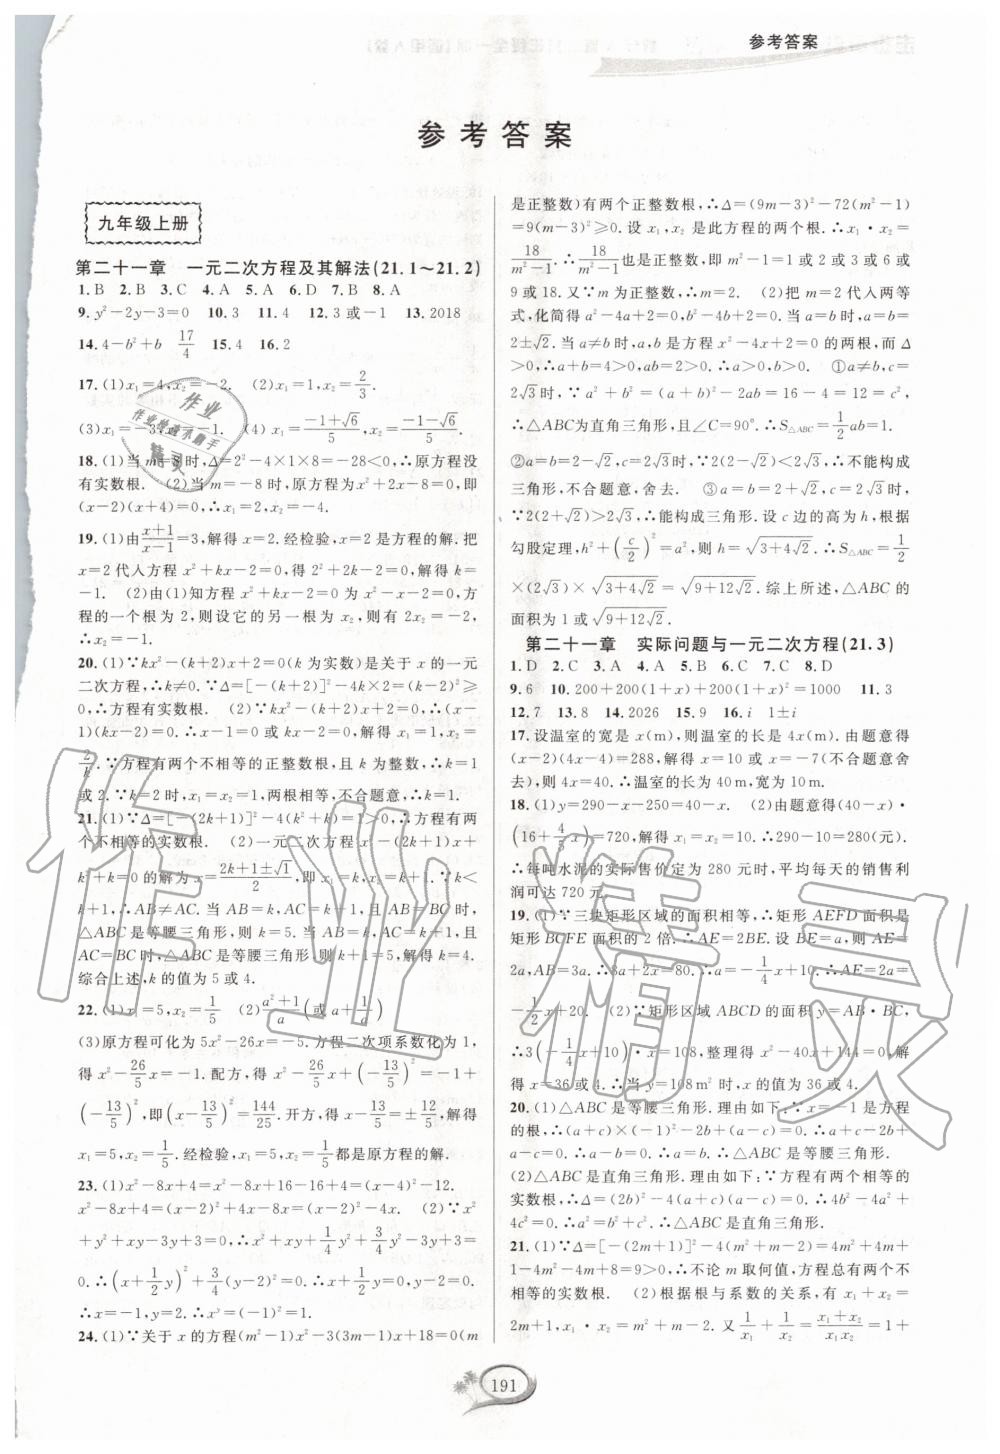 参考答案
参考答案
九年级上册
第二十一章 一元二次方程及其解法(21.1～21.2)
1.B 2.B 3.C 4.A 5.A 6.D 7.B 8.A
9.y²－2y－3＝0 10.3 11.4 12.3或－1 13.2018
14.4－b²＋b 17/4 15.4 16.2
17.(1)x₁＝4,x₂＝－2. (2)x₁＝1,x₂＝2/3.
(3)x₁＝－3,x₂＝1. (4) x₁＝(－1＋√6)/5,x₂＝(－1－√6)/5.
18.(1)当 m＝8时,Δ＝2²－4×1×8＝－28＜0,∴原方程没
有实数根. (2)当 m＝－8时,原方程为x²＋2x－8＝0,即
(x－2)(x＋4)＝0,∴x₁＝2,x₂＝－4.
19.(1)由(x＋1)/(x－1)＝3,解得 x＝2.经检验,x＝2是方程的解.把
x＝2代入方程 x²＋kx－2＝0,得 2²＋2k－2＝0,解得 k＝
－1. (2)由(1)知方程 x²＋kx－2＝0 为 x²－x－2＝0,方
程的一个根为 2,则设它的另一根为 x₂,则有 2x₂＝－2,
∴x₂＝－1.
20.(1)∵kx²－(k＋2)x＋2＝0(k为实数)是关于 x 的一元
二次方程,∴k≠0.∵Δ＝[－(k＋2)]²－4k×2＝(k－2)²≥
0,∴方程有实数根. (2)∵kx²－(k＋2)x＋2＝0,∴(x－
1)(kx－2)＝0.∴x－1＝0 或 kx－2＝0.解得 x₁＝1,x₂＝
2/k.∵方程有两个不相等的正整数根,且 k 为整数,∴k＝1
或2.∵k＝2时,x₁＝x₂＝1,两根相等,不合题意,∴k＝1.
21.(1)∵Δ＝[－(2k＋1)]²－4(k²＋k)＝1＞0,∴方程有两
个不相等的实数根. (2)一元二次方程x²－(2k＋1)x＋
k²＋k＝0的解为 x＝(2k＋1±√1)/2,即x₁＝k,x₂＝k＋1.∵k＜
k＋1,∴AB≠AC.当 AB＝k,AC＝k＋1,且 AB＝BC 时,
△ABC 是等腰三角形,则 k＝5.当 AB＝k,AC＝k＋1,且
AC＝BC时,△ABC是等腰三角形,则 k＋1＝5,解得k＝4.
综合上述,k的值为5或4.
22.(1)x₁＝5,x₂＝1/5 (2)(a²＋1)/a(或a＋1/a)
(3)原方程可化为 5x²－26x＝－5.方程二次项系数化为 1,
得 x²－26/5x＝－1.配方,得 x²－26/5x＋(－13/5)²＝－1＋
(－13/5)²,即(x－13/5)²＝144/25.开方,得 x－13/5＝±12/5,解得
x₁＝5,x₂＝1/5.经检验,x₁＝5,x₂＝1/5都是原方程的解.
23.(1)x²－8x＋4＝x²－8x＋16－16＋4＝(x－4)²－12.
x²－8x＋4＝(x－2)²＋4x－8x＝(x－2)²－4x. (2)∵x²
＋y²＋xy－3y＋3＝0,∴x²＋xy＋1/4y²＋3/4y²－3y＋3＝
0.∴(x＋1/2y)²＋3/4(y－2)²＝0.∴x＋1/2y＝0,y－2＝0.
∴x＝－1,y＝2.∴xʸ＝(－1)²＝1.
24.(1)∵关于 x 的方程(m²－1)x²－3(3m－1)x＋18＝0(m
是正整数)有两个正整数根,∴Δ＝(9m－3)²－72(m²－1)
＝9(m－3)²≥0. 设 x₁,x₂ 是此方程的两个根,∴x₁·x₂＝
18/(m²－1).∴18/(m²－1)也是正整数,即 m²－1＝1 或 2 或 3 或 6 或
9 或 18.又∵m 为正整数,∴m＝2. (2)把 m＝2 代入两等
式,化简得 a²－4a＋2＝0,b²－4b＋2＝0.当 a＝b 时,a＝b＝
2±√2.当 a≠b时,a,b 是方程 x²－4x＋2＝0 的两根,而 Δ
＞0,∴a＋b＝4＞0,ab＝2＞0,∴a＞0,b＞0. ①a≠b,c＝
2√3时,∵ a²＋b²＝(a＋b)²－2ab＝16－4＝12＝c²,
∴△ABC为直角三角形,且∠C＝90°.∴S△ABC＝1/2ab＝1.
②a＝b＝2－√2,c＝2√3时,∵2(2－√2)＜2√3,∴不能构成
三角形,不合题意,舍去. ③a＝b＝2＋√2,c＝2√3时,
∵2(2＋√2)＞2√3,∴能构成三角形.设 c 边的高为 h,根据
勾股定理,h²＋(c/2)²＝a²,则 h＝√(3＋4√2).∴S△ABC＝1/2
×(2√3)×√(3＋4√2)＝√(9＋12√2).综上所述,△ABC 的
面积为1或√(9＋12√2).
第二十一章 实际问题与一元二次方程(21.3)
1.D 2.C 3.A 4.A 5.B 6.C 7.C 8.D
9.6 10.200＋200(1＋x)＋200(1＋x)²＝1000 11.3
12.7 13.8 14.2026 15.9 16.i 1±i
17.设温室的宽是 x(m),则温室的长是 4x(m).由题意得
(x－2)(4x－4)＝288,解得 x＝10 或 x＝－7(不合题意舍
去),则 4x＝40.∴温室的长为 40 m,宽为 10 m.
18.(1)y＝290－x－250＝40－x. (2)由题意得(40－x)·
(16＋4/5x)＝720,解得 x₁＝x₂＝10.∴290－10＝280(元).
∴每吨水泥的实际售价定为 280 元时,平均每天的销售利
润可达 720 元.
19.(1)∵三块矩形区域的面积相等,∴矩形 AEFD 面积是
矩形 BCFE 面积的 2 倍.∴AE＝2BE.设 BE＝a,则 AE＝
2a,AB＝3a.∴8a＋2x＝80.∴a＝－1/4x＋10,∴AE＝2a＝
－1/2x＋20. (2)∵矩形区域 ABCD 的面积 y＝AB·BC,
∴3(－1/4x＋10)x＝108,整理得 x²－40x＋144＝0,解
得 x＝36 或 4.∴当 y＝108 m²时,x 的值为 36 或 4.
20.(1)△ABC 是等腰三角形.理由如下:∵x＝－1 是方程
的根,∴(a＋c)×(－1)²－2b＋(a－c)＝0.∴a＋c－2b＋
a－c＝0.∴a－b＝0.∴a＝b.∴△ABC 是等腰三角形.
(2)△ABC 是直角三角形.理由如下:∵方程有两个相等的
实数根,∴Δ＝(2b)²－4(a＋c)(a－c)＝0.∴4b²－4a²＋
4c²＝0.∴a²＝b²＋c².∴△ABC是直角三角形.
21.(1)∵Δ＝[－(2m＋1)]²－4(m²＋m－2)＝4m²＋4m＋
1－4m²－4m＋8＝9＞0,∴不论 m 取何值,方程总有两个不
相等的实数根. (2)根据根与系数的关系,有 x₁＋x₂＝
2m＋1,x₁·x₂＝m²＋m－2.又 1/x₁＋1/x₂＝(x₁＋x₂)/(x₁x₂)＝1＋
191
作业精灵